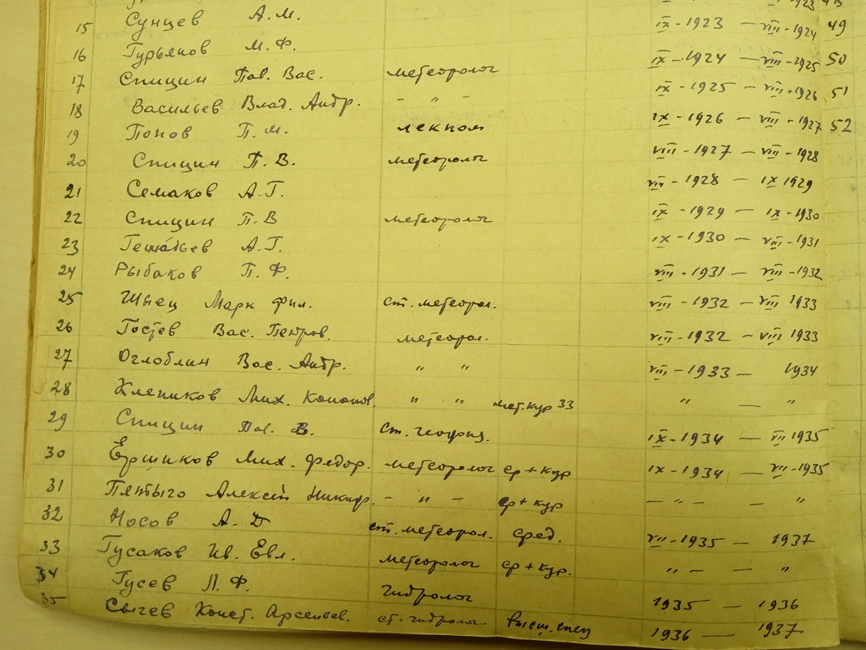 15 Сунцев А. М. IX - 1923 — VIII - 1924 49
16 Гурьянов М. Ф. IX - 1924 — VIII - 1925 50
17 Спицин Пав. Вас. метеоролог IX - 1925 — VIII - 1926 51
18 Васильев Влад. Андр. - " - IX - 1926 — VIII - 1927 52
19 Попов П. М. лекпом VIII - 1927 — VIII - 1928
20 Спицин П. В. метеоролог VIII - 1928 — IX 1929
21 Семаков А. Г. IX - 1929 — IX - 1930
22 Спицин П. В метеоролог IX - 1930 — VIII - 1931
23 А. Г. VIII - 1931 — VIII - 1932
24 Рыбаков П. Ф. VIII - 1932 — VIII 1933
25 Швец Марк Фил. ст. метеорол. VIII - 1932 — VIII 1933
26 Гостев Вас. Петров. метеорол.
27 Оглоблин Вас. Андр. " " VIII - 1933 — 1934
28 Клепиков Мих. Кононов. " " мет. кур 33 " — "
29 Спицин Пав. В. ст. геофиз. IX - 1934 — VII 1935
30 Ершиков Мих. Федор. метеоролог ср + кур IX - 1934 — VII - 1935
31 Алексей Никиф. - " - ср + кур — " — "
32 Носов А. Д ст. метеорол. сред. VII - 1935 — 1937
33 Гусаков Ив. Евл. метеоролог ср + кур. " — — "
34 Гусев Л. Ф. гидролог 1935 — 1936
35 Сычев Конст. Арсеньев. ст. гидролог 1936 — 1937